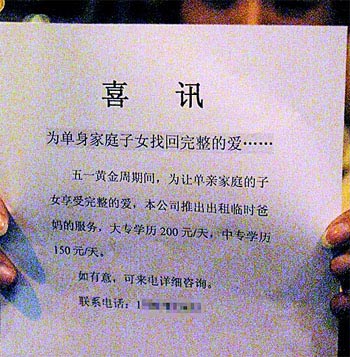 喜 讯
为单身家庭子女找回完整的爱……
五一黄金周期间，为让单亲家庭的子
女享受完整的爱，本公司推出出租临时爸
妈的服务，大专学历 200 元/天，中专学历
150 元/天。
如有意，可来电详细咨询。
联系电话：1